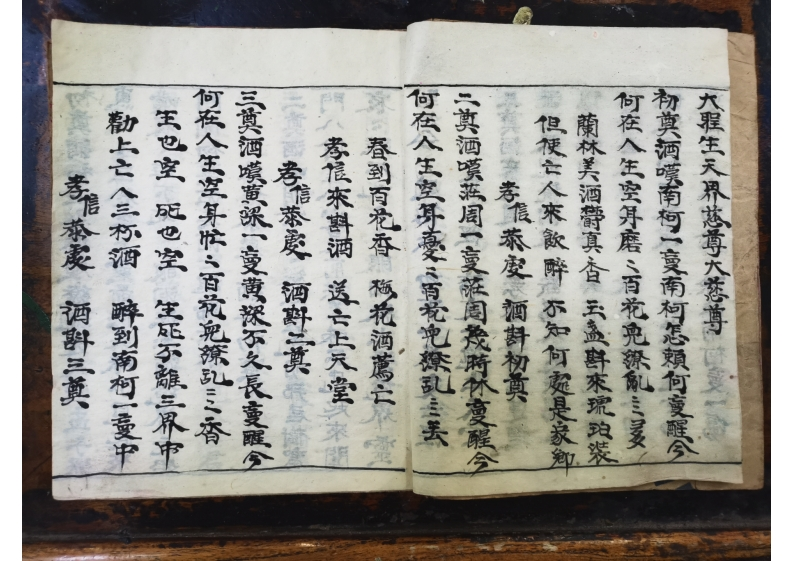 大聖生天界慈尊大慈尊
初奠酒嘆南柯一夢南柯怎賴何夢醒今
何在人生空自磨〻百花兜繚亂〻〻多
蘭林美酒欝真香 玉盞斟來琥珀裝
但使亡人來飲醉 不知何處是家鄉
孝信恭虔 酒斟初奠
二奠酒嘆莊周一夢莊周幾時休夢醒今
何在人生空自憂〻百花兜繚乱〻〻丟
春到百花香 梅花酒薦亡
孝信來斟酒 送亡上天堂
孝信恭虔 酒斟二奠
三奠酒嘆黄梁一夢黄梁不久長夢醒今
何在人生空自忙〻百花兜繚乱〻〻香
生也空 死也空 生死不離三界中
勸上亡人三杯酒 醉到南柯一夢中
孝信恭虔 酒斟三奠